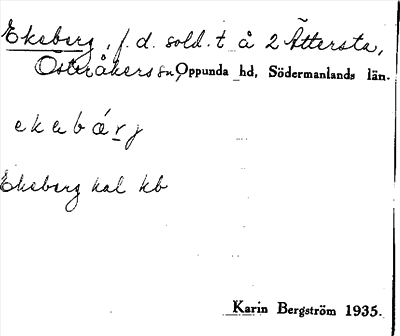 Ekeberg, f. d. sold. t. å 2 Ättersta,
Österåkers sn, Oppunda hd, Södermanlands län.
ekabárj
Ekeberg kal kb
Karin Bergström 1935.